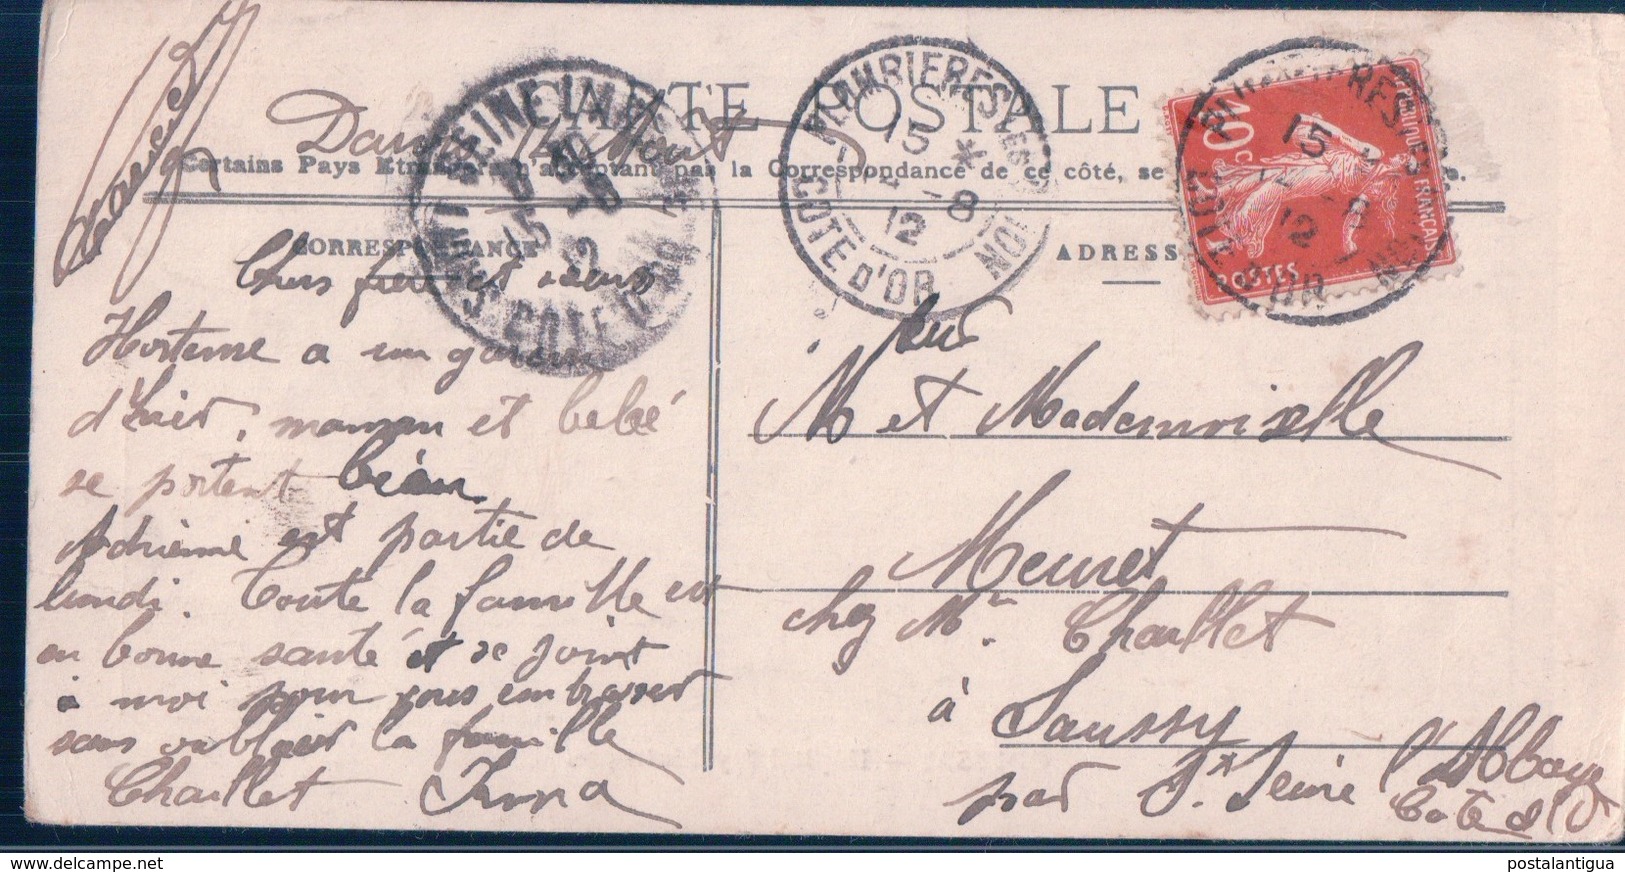 CARTE POSTALE
14 Aout
Certains Pays Etrangers n'acceptant pas la Correspondance de ce côté, se
CORRESPONDANCE
ADRESSE
PLOMBIERES-LES
15 * 
12 -8
COTE D'OR
ST SEINE L'ABBAYE
15 -8
12
COTE D'OR
REPUBLIQUE FRANÇAISE
10 c
POSTES
Chers frère et sœurs
Hortense a un garcon
d'hier, maman et bébé
se portent bien
Adrienne est partie de
lundi. Toute la famille est
en bonne santé et se joint
à moi pour vous embrasser
sans oublier la famille
Chaillet
M et Mademoiselle
Meuret
chez Mr Chaillet
à Saussy
par St Seine l'Abbaye
Cote d'Or
postalantigua